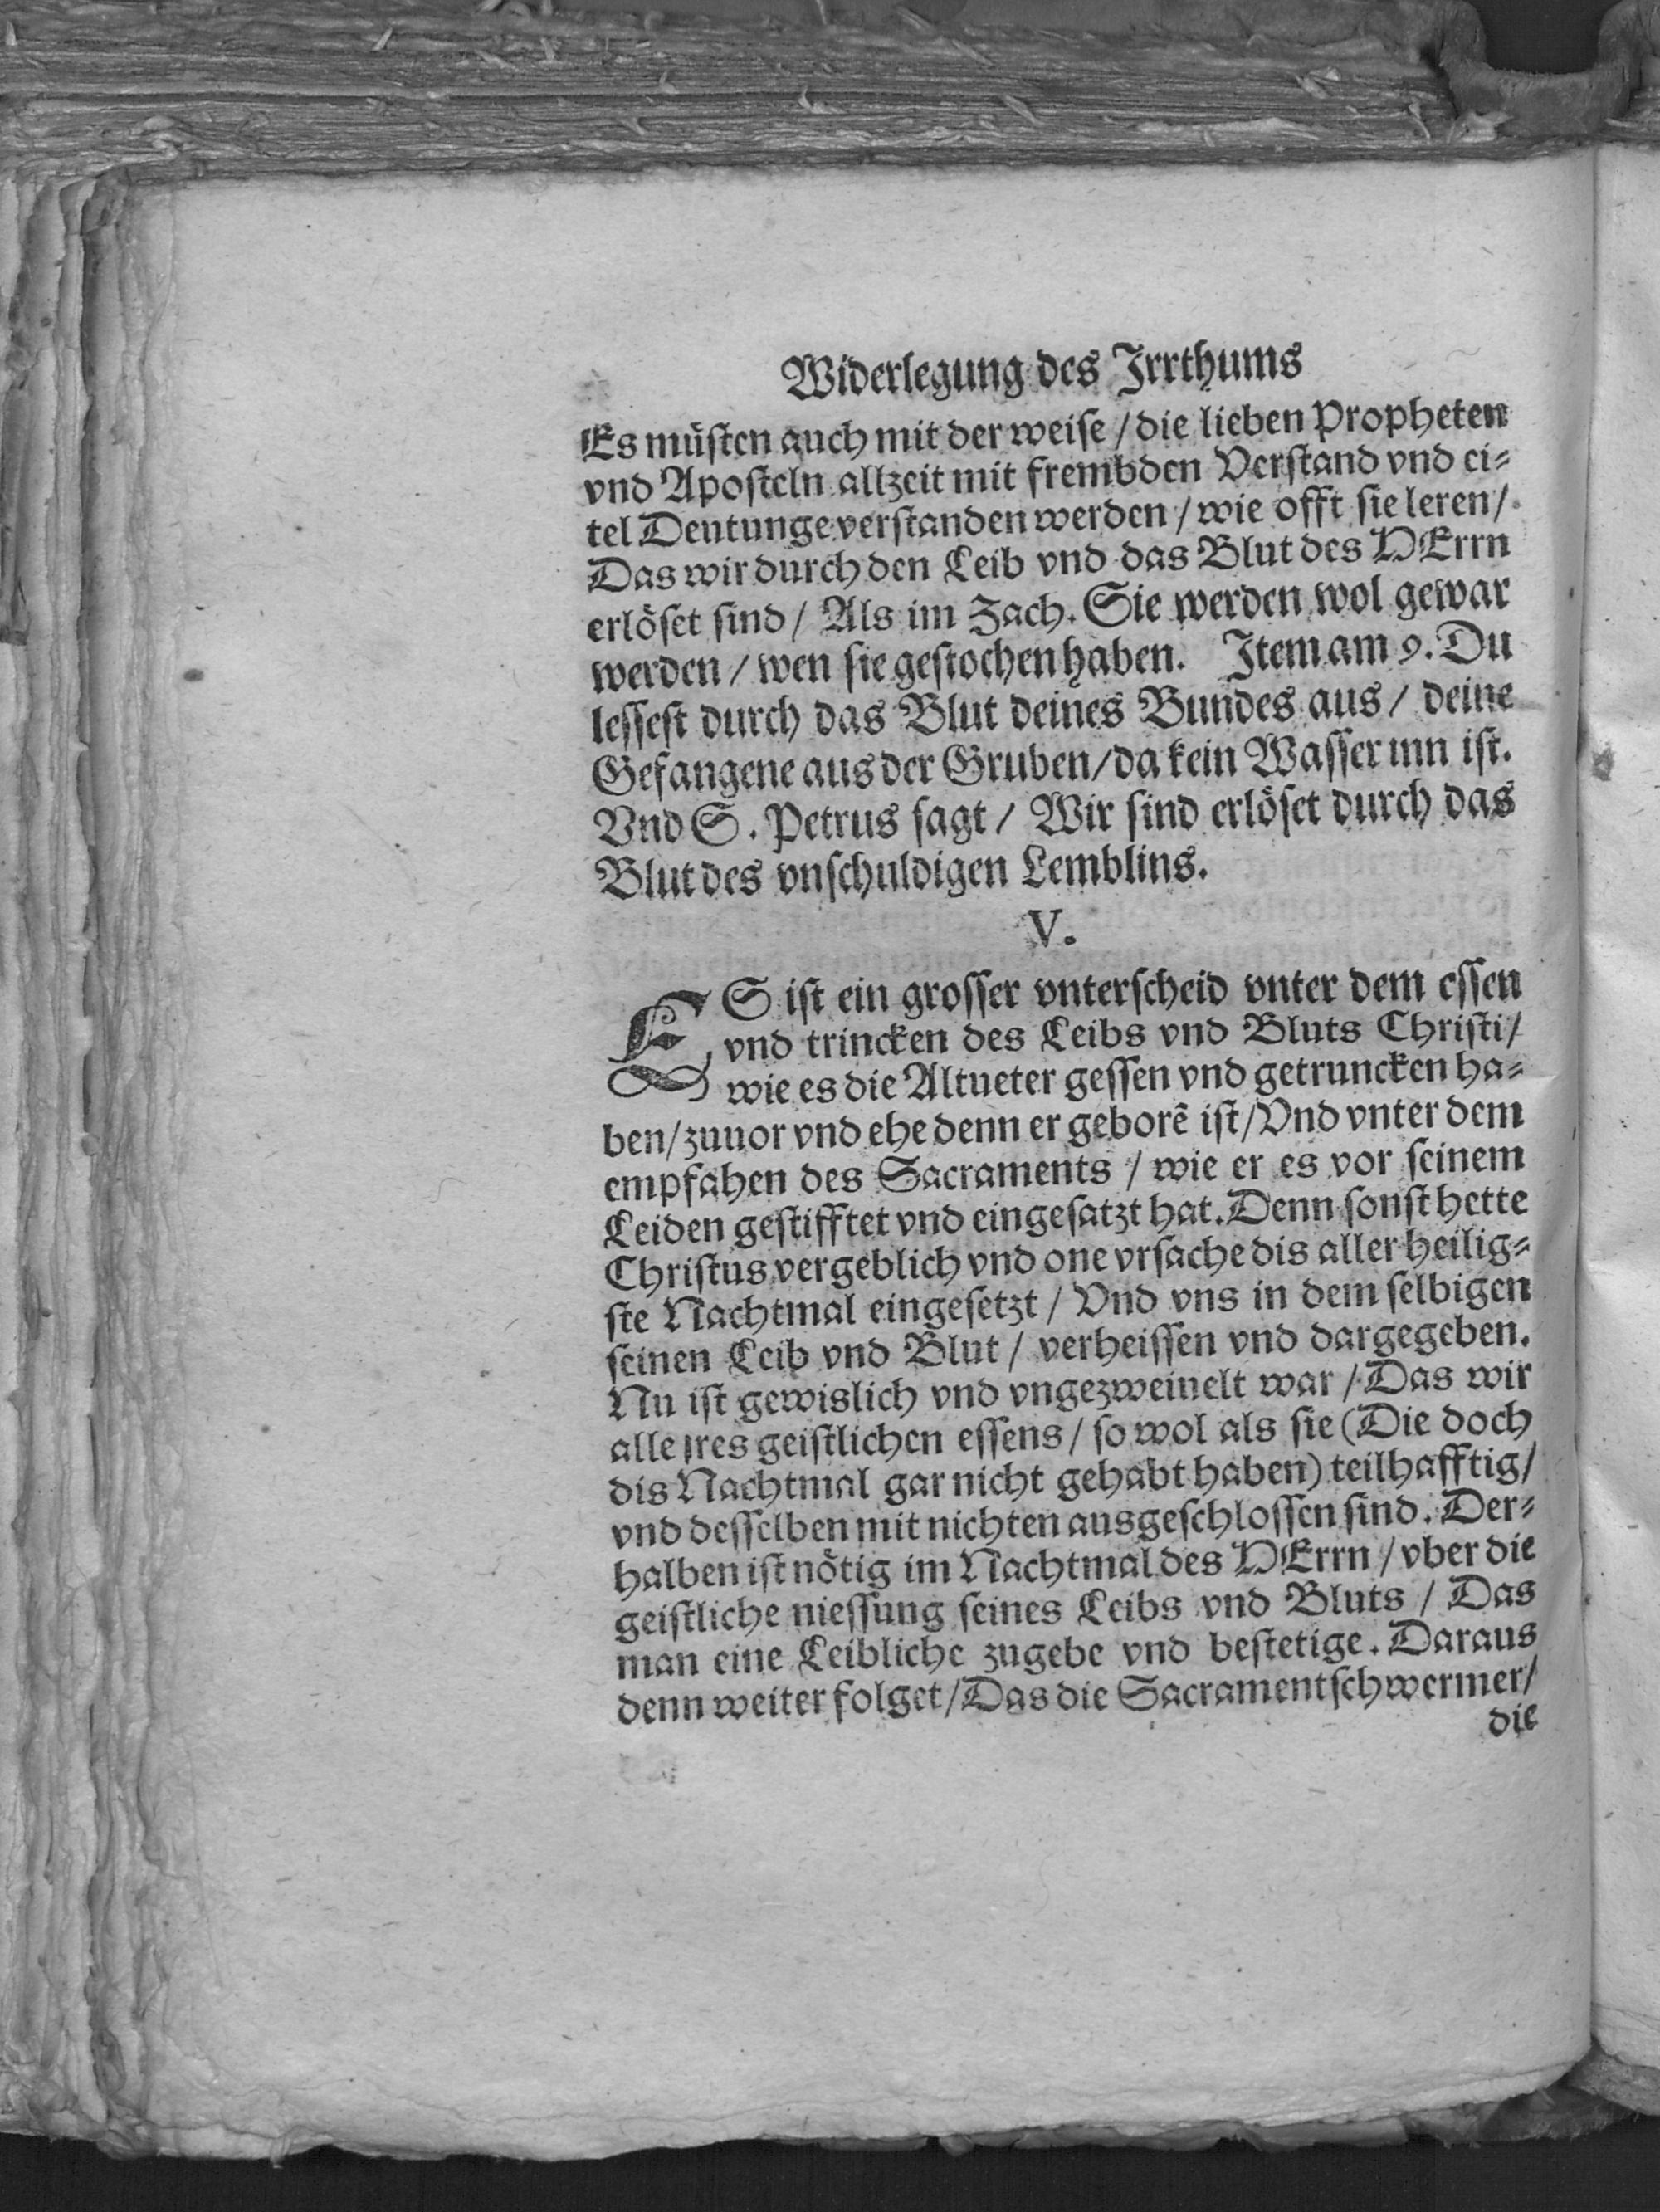 Widerlegung des Jrrthums
Es müsten auch mit der weise / die lieben Propheten
vnd Aposteln allzeit mit frembden Verstand vnd ei⸗
tel Deutunge verstanden werden / wie offt sie leren /
Das wir durch den Leib vnd das Blut des HErrn
erlöset sind / Als im Zach. Sie werden wol gewar
werden / wen sie gestochen haben. Jtem am 9. Du
lessest durch das Blut deines Bundes aus / deine
Gefangene aus der Gruben / da kein Wasser inn ist.
Vnd S. Petrus sagt / Wir sind erlöset durch das
Blut des vnschuldigen Lemblins.
V.
ES ist ein grosser vnterscheid vnter dem essen
vnd trincken des Leibs vnd Bluts Christi /
wie es die Altueter gessen vnd getruncken ha⸗
ben / zuuor vnd ehe denn er geborē ist / Vnd vnter dem
empfahen des Sacraments / wie er es vor seinem
Leiden gestifftet vnd eingesatzt hat. Denn sonst hette
Christus vergeblich vnd one vrsache dis aller heilig⸗
ste Nachtmal eingesetzt / Vnd vns in dem selbigen
seinen Leib vnd Blut / verheissen vnd dargegeben.
Nu ist gewislich vnd vngezweiuelt war / Das wir
alle jres geistlichen essens / so wol als sie (Die doch
dis Nachtmal gar nicht gehabt haben) teilhafftig /
vnd desselben mit nichten ausgeschlossen sind. Der⸗
halben ist nötig im Nachtmal des HErrn / vber die
geistliche niessung seines Leibs vnd Bluts / Das
man eine Leibliche zugebe vnd bestetige. Daraus
denn weiter folget / Das die Sacramentschwermer /
die